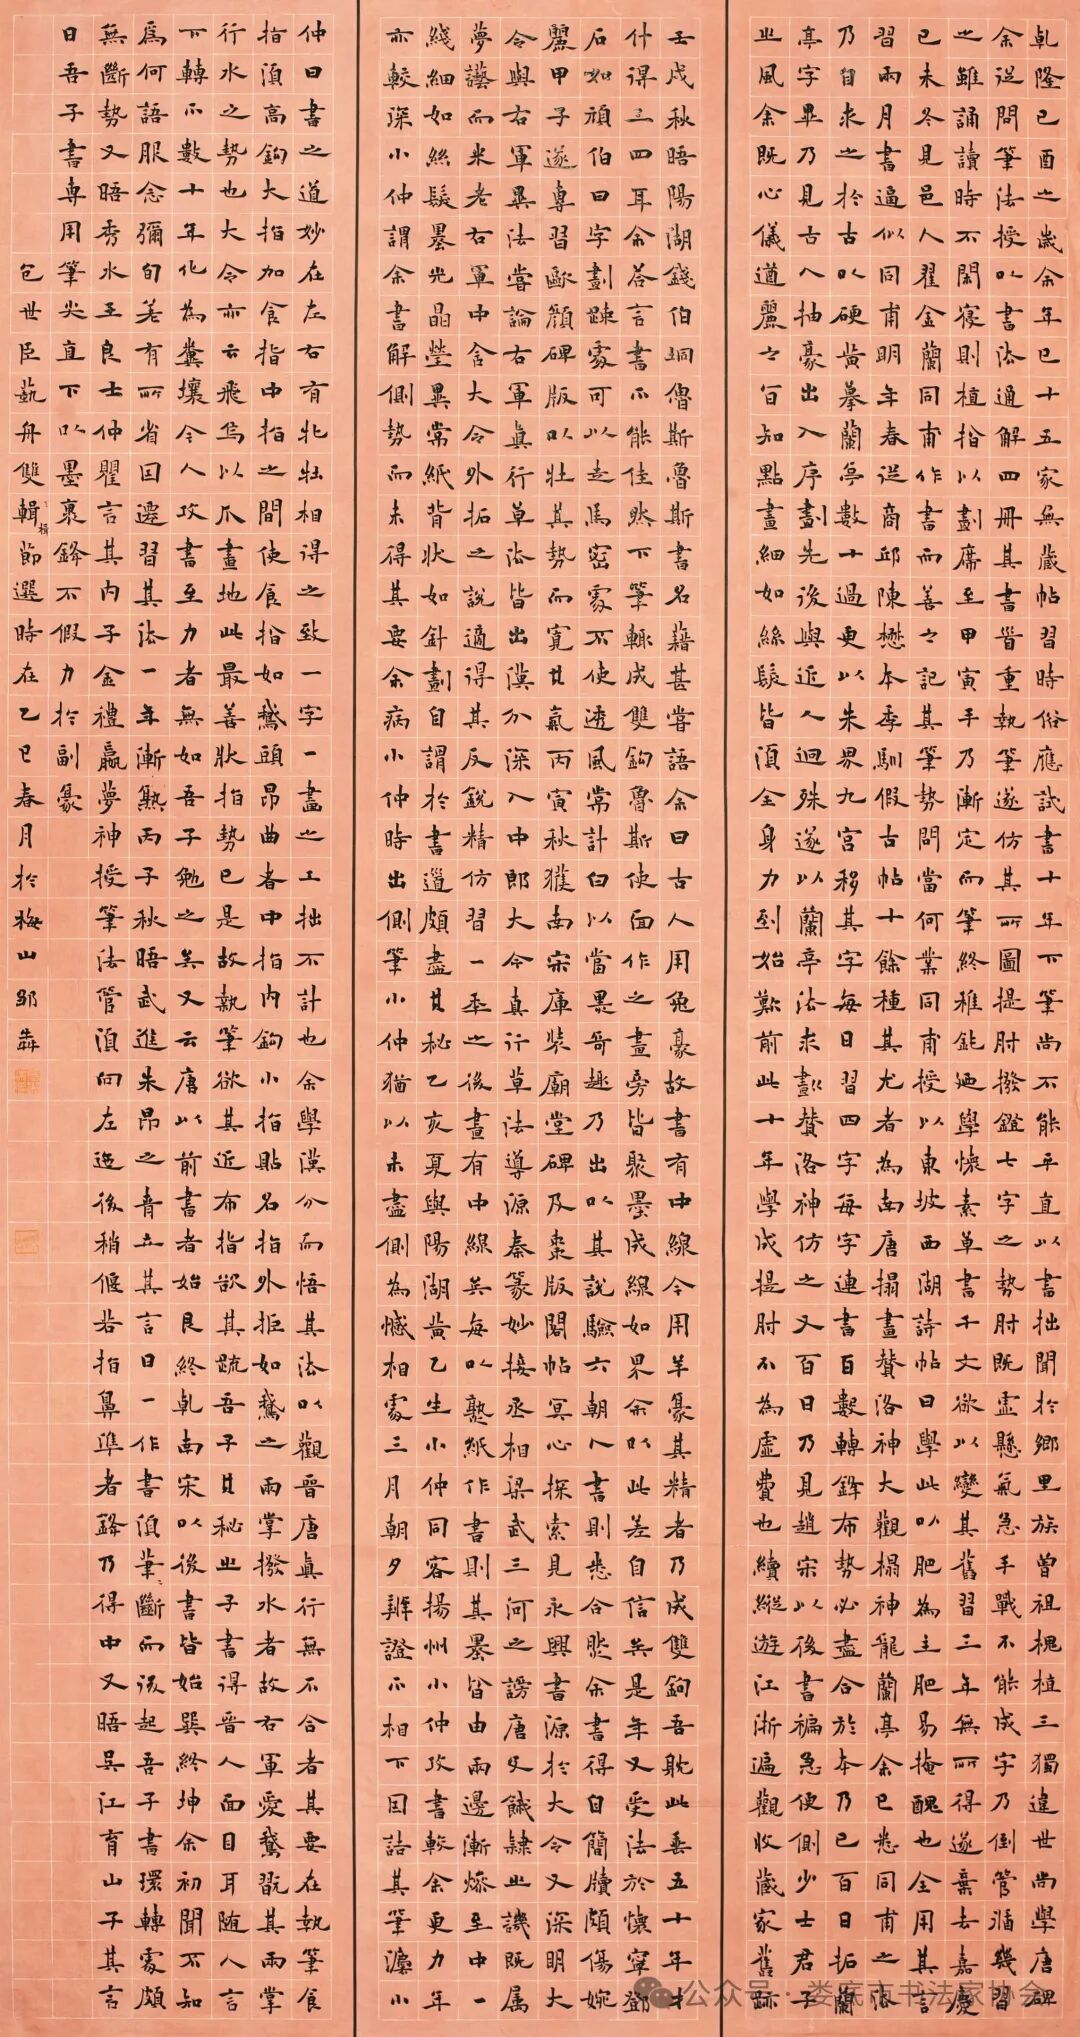 乾隆己酉之歲余年已十五家無藏帖習時俗應試書十年下筆尚不能平直以書拙聞於鄉里族曾祖槐植三獨違世尚學唐碑
余從問筆法授以書法通解四冊其書首重執筆遂仿其所圖提肘撥鐙七字之勢肘既虛懸氣急手戰不能成字乃倒管循幾習
之雖誦讀時不閑寢則植指以劃席至甲寅手乃漸定而筆終稚鈍迺學懷素草書千文欲以變其舊習三年無所得遂棄去嘉慶
已未冬見邑人翟金蘭同甫作書而善之記其筆勢問當何業同甫授以東坡西湖詩帖曰學此以肥為主肥易掩醜也全用其言
習兩月書逼似同甫明年春從商邱陳懋本季馴假古帖十餘種其尤者為南唐搨畫贊洛神大觀搨神龍蘭亭余已悉同甫之法
乃自求之於古以硬黃摹蘭亭數十過更以朱界九宮移其字每日習四字每字連書百數轉鋒布勢必盡合於本乃已百日拓蘭
亭字畢乃見古人抽豪出入序劃先後與近人迥殊遂以蘭亭法求畫贊洛神仿之又百日乃見趙宋以後書褊急便側少士君子
之風余既心儀遒麗之旨知點畫細如絲髮皆須全身力到始歎前此十年學成提肘不為虛費也續縱遊江浙遍觀收藏家舊跡
壬戌秋晤陽湖錢伯坰魯斯魯斯書名藉甚嘗語余曰古人用兔豪故書有中線今用羊篆其精者乃成雙鉤吾耽此垂五十年才
什得三四耳余答言書不能佳然下筆輒成雙鉤魯斯使面作之畫旁皆聚墨成線如界余以此差自信矣是年又受法於懷寧鄧
石如頑伯曰字劃踈處可以走馬密處不使透風常計白以當黑奇趣乃出以其說驗六朝人書則悉合然余書得自簡牘頗傷婉
麗甲子遂專習歐顏碑版以壯其勢而寬其氣丙寅秋獲南宋庫裝廟堂碑及棗版閣帖冥心探索見永興書源於大令又深明大
令與右軍異法嘗論右軍真行草法皆出漢分深入中郎大令真行草法導源秦篆妙接丞相梁武三河之謗唐文餓隸之譏既属
夢囈而米老右軍中含大令外拓之說適得其反銳精仿習一年之後畫有中線矣每以熟紙作書則其墨皆由兩邊漸燥至中一
綫細如絲髮墨光晶瑩異常紙背狀如針劃自謂於書道頗盡其秘乙亥夏與陽湖黃乙生小仲同客揚州小仲攻書較余更力年
亦較深小仲謂余書解側勢而未得其要余病小仲時出側筆小仲猶以未盡側為憾相處三月朝夕辨證不相下因詰其筆灋小
仲曰書之道妙在左右有牝牡相得之致一字一畫之工拙不計也余學漢分而悟其法以觀晉唐真行無不合者其要在執筆食
指須高鉤大指加食指中指之間使食指如鵞頭昂曲者中指內鉤小指貼名指外拒如鵞之兩掌撥水者故右軍愛鵞翫其兩掌
行水之勢也大令亦云飛鳥以爪畫地此最善狀指勢已是故執筆欲其近布指欲其疏吾子其秘之子書得晉人面目耳随人言
下轉不數十年化為糞壤今人攻書至力者無如吾子勉之矣又云唐以前書者始艮終乾南宋以後書皆始巽終坤余初聞不知
為何語服念彌旬若有所省因遷習其法一年漸熟丙子秋晤武進朱昂之青立其言曰一作書須筆〻斷而後起吾子書環轉處頗
無斷勢又晤秀水王良士仲瞿言其內子金禮嬴夢神授筆法管須向左迤後稍偃若指鼻準者鋒乃得中又晤吳江育山子其言
曰吾子書專用筆尖直下以墨裹鋒不假力於副豪
包世臣藝舟雙輯〻楫節選時在乙巳春月於梅山邹犇
公众号·娄底市书法家协会